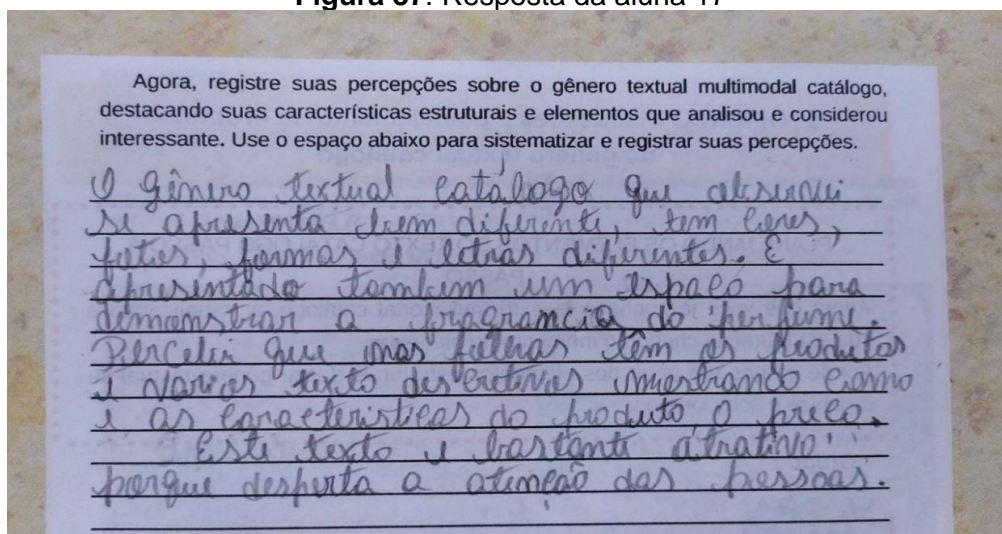 Figura 37: Resposta da aluna 17
Agora, registre suas percepções sobre o gênero textual multimodal catálogo,
destacando suas características estruturais e elementos que analisou e considerou
interessante. Use o espaço abaixo para sistematizar e registrar suas percepções.
O gênero textual catálogo que observei
se apresenta bem diferente, tem cores,
fotos, formas e letras diferentes. É
apresentado tambem um espaço para
demonstrar a fragrancia do perfume.
Percebi que nas folhas têm os produtos
e varios texto descritivos mostrando como
e as caracteristicas do produto, o preço.
Este texto e bastante atrativo
porque desperta a atenção das pessoas.